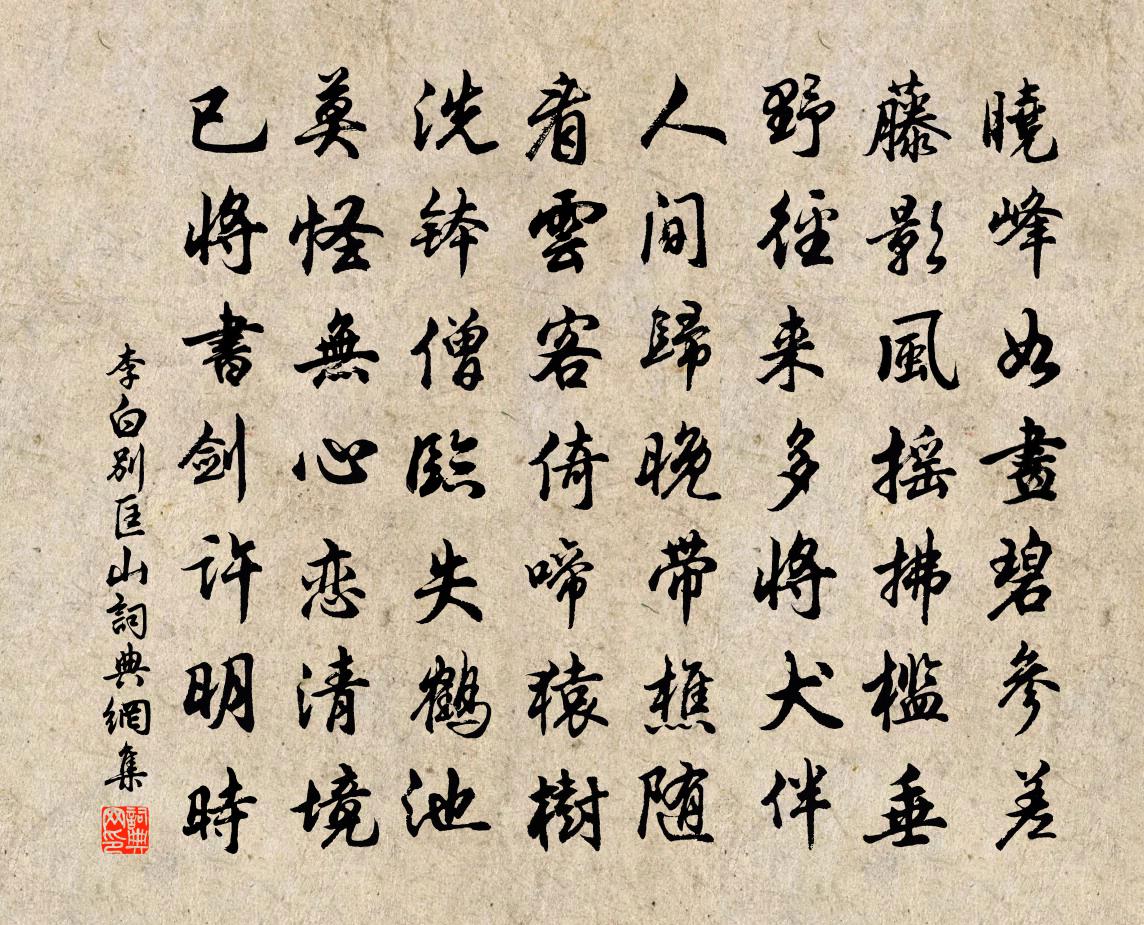 曉峰如畫碧參差
藤影風搖拂檻垂
野徑来多將犬伴
人間歸晚帶樵随
看雲客倚啼猿樹
洗鉢僧臨失鶴池
莫怪無心恋清境
已將書劍許明時
李白別匡山詞典網集
詞典网印